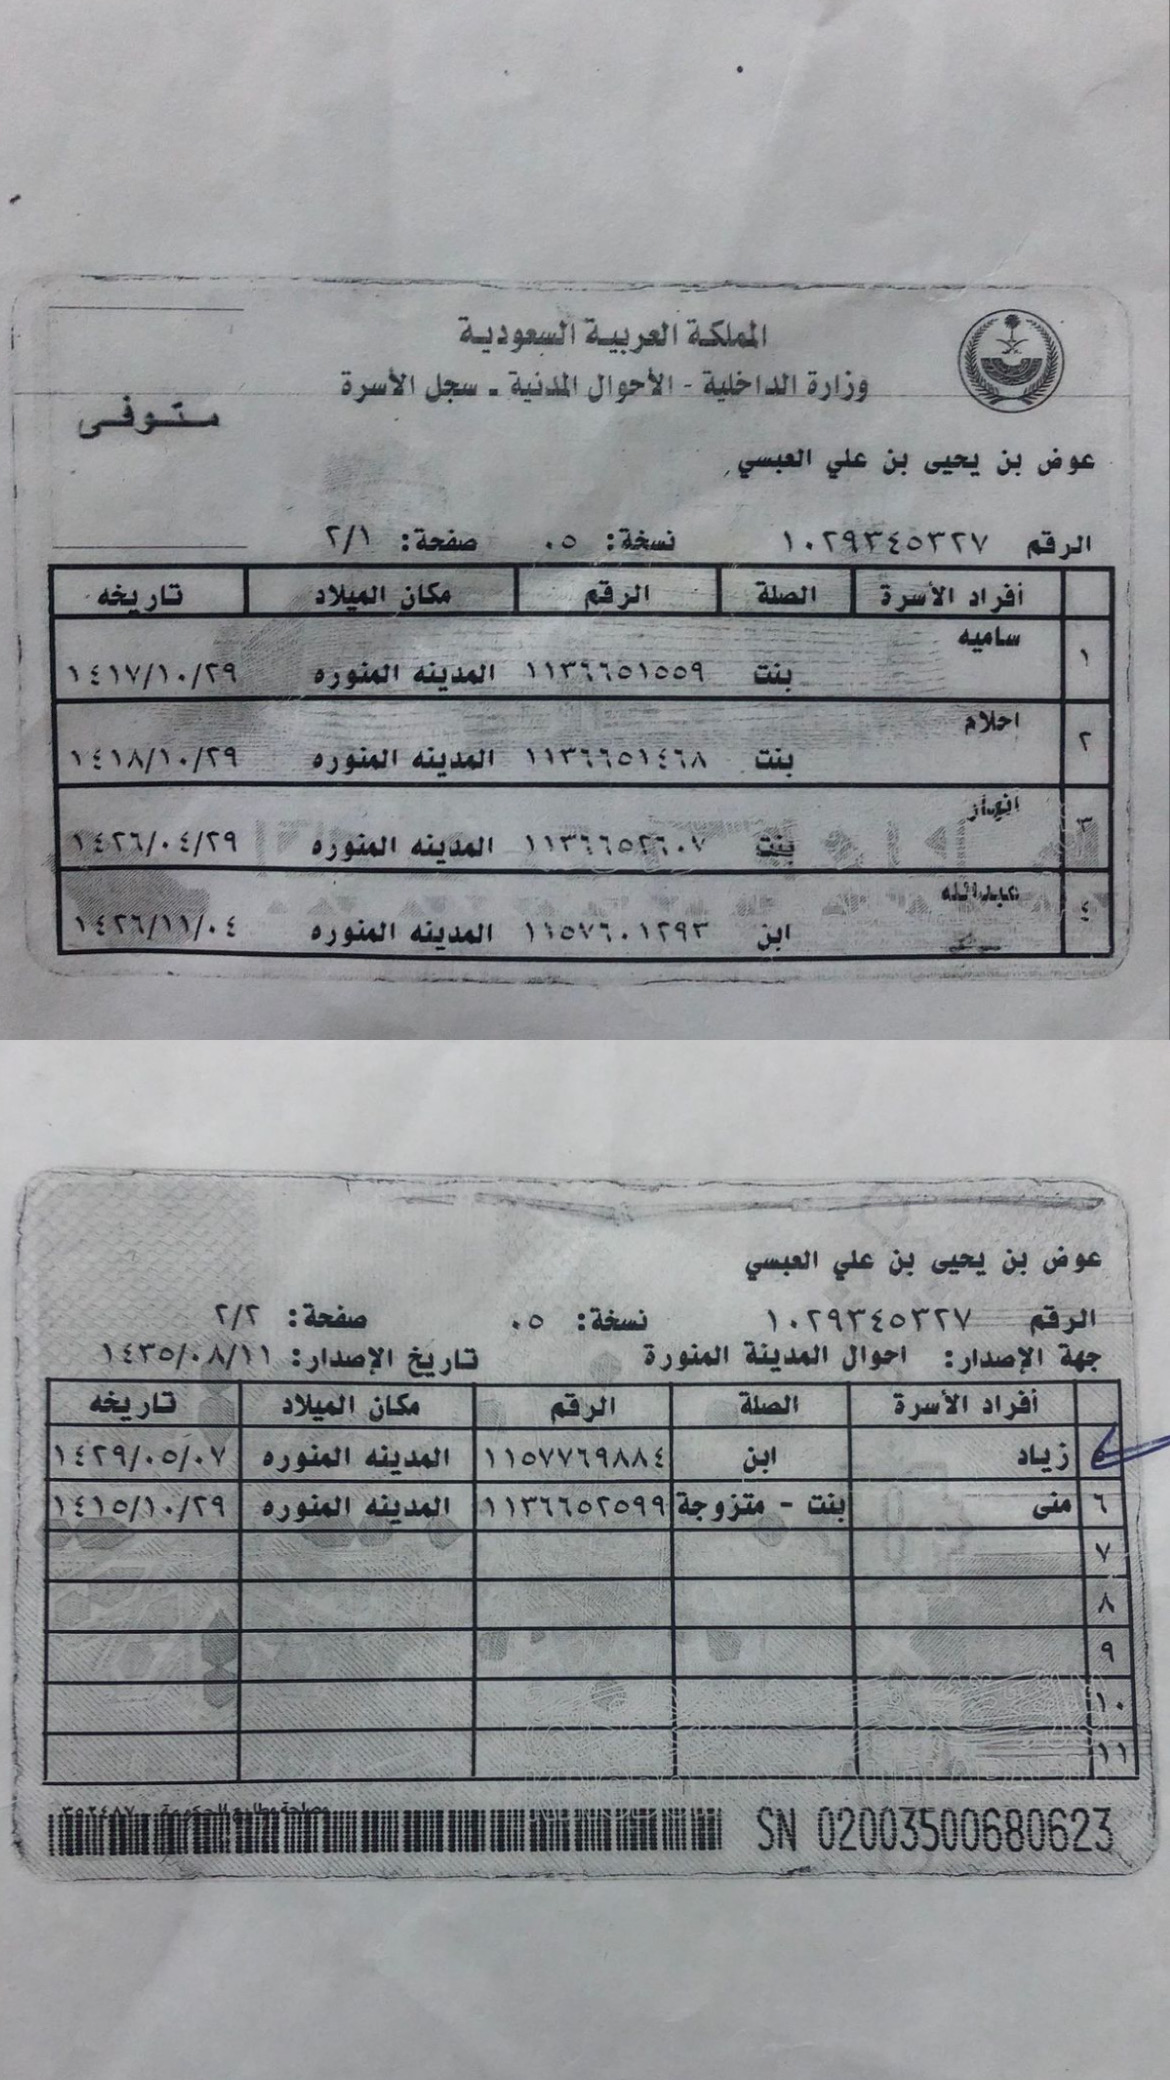 المملكة العربية السعودية
وزارة الداخلية - الأحوال المدنية - سجل الأسرة
متوفى
عوض بن يحيى بن علي العبسي
الرقم ١٠٢٩٣٤٥٣٢٧ نسخة: ٠٥ صفحة: ٢/١
أفراد الأسرة الصلة الرقم مكان الميلاد تاريخه
١ ساميه بنت ١١٣٦٦٥١٥٥٩ المدينه المنوره ١٤١٧/١٠/٢٩
٢ احلام بنت ١١٣٦٦٥١٤٦٨ المدينه المنوره ١٤١٨/١٠/٢٩
٣ انهار بنت ١١٣٦٦٥٢٦٠٧ المدينه المنوره ١٤٢٦/٠٤/٢٩
٤ عبدالله ابن ١١٥٧٦٠١٢٩٣ المدينه المنوره ١٤٢٦/١١/٠٤
عوض بن يحيى بن علي العبسي
الرقم ١٠٢٩٣٤٥٣٢٧ نسخة: ٠٥ صفحة: ٢/٢
جهة الإصدار: احوال المدينة المنورة تاريخ الإصدار: ١٤٣٥/٠٨/١١
أفراد الأسرة الصلة الرقم مكان الميلاد تاريخه
زياد ابن ١١٥٧٧٦٩٨٨٤ المدينه المنوره ١٤٢٩/٠٥/٠٧
٦ منى بنت - متزوجة ١١٣٦٦٥٢٥٩٩ المدينه المنوره ١٤١٥/١٠/٢٩
٧
٨
٩
١٠
١١
SN 02003500680623